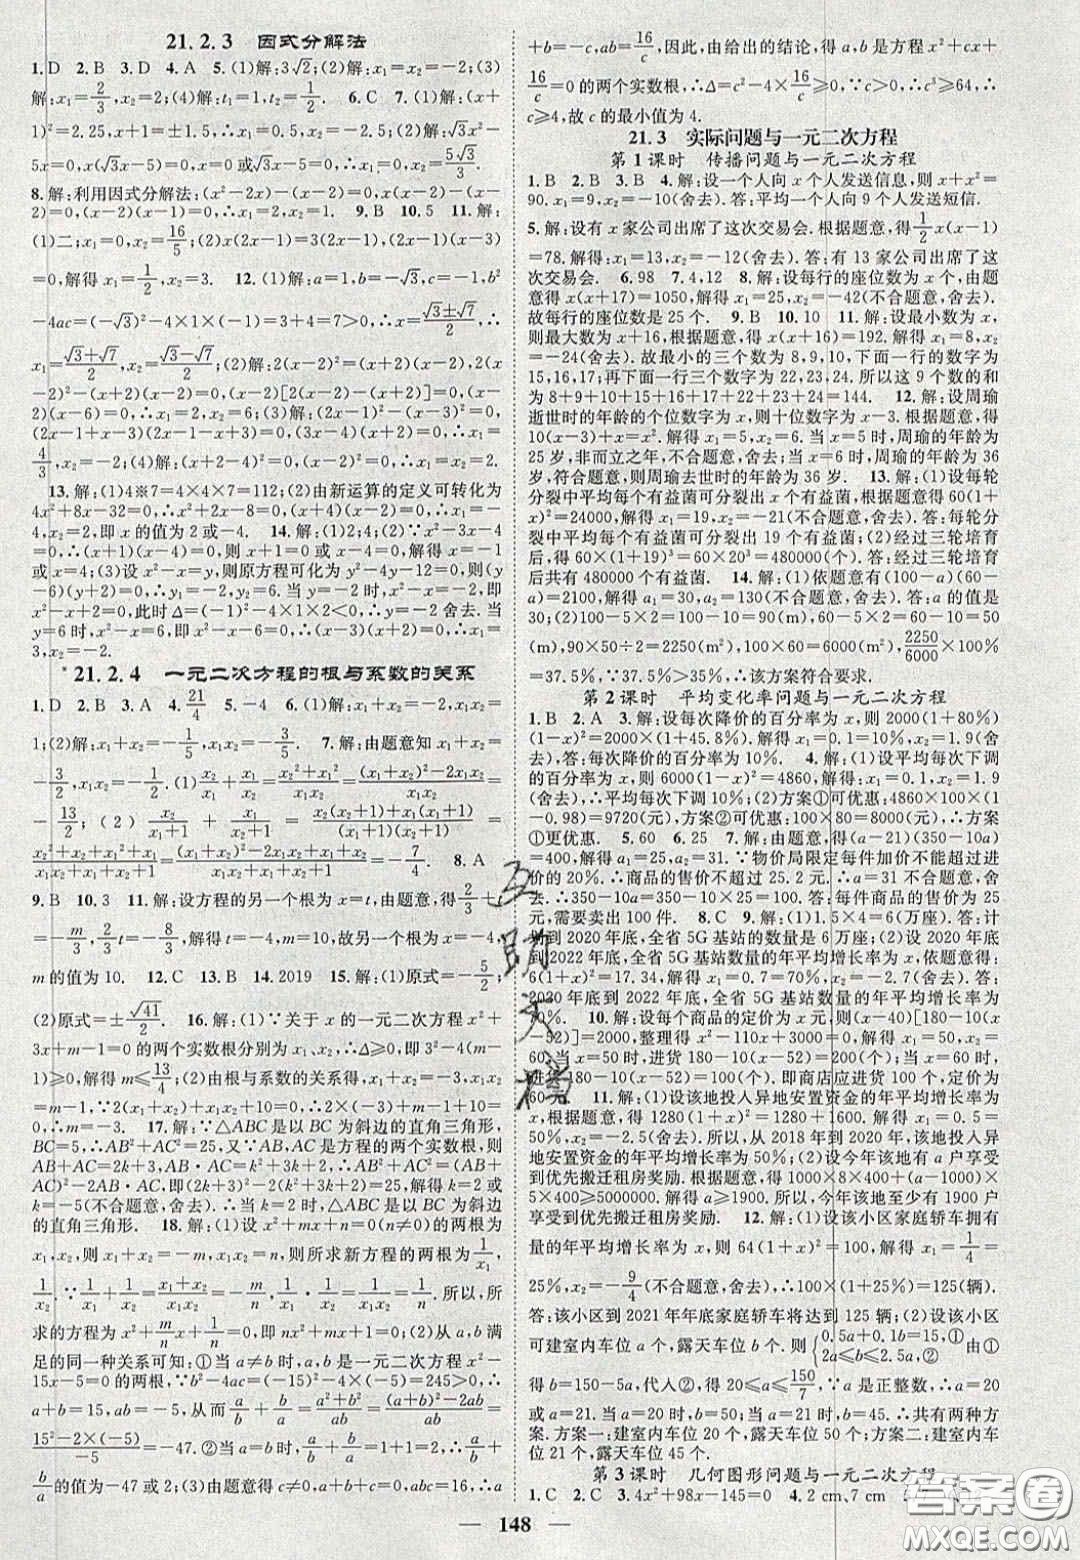 21.2.3 因式分解法
1.D 2.B 3.D 4.A 5.(1)解:3√2;(2)解:x₁=x₂=-2;(3)
解:x₁=2/3,x₂=2;(4)解:t₁=1,t₂=1/2. 6.C 7.(1)解:(x+
1)²=2.25,x+1=±1.5,∴x₁=0.5,x₂=-2.5;(2)解:√3x²-
5x=0,x(√3x-5)=0,∴x=0或√3x-5=0,∴x₁=0,x₂=5√3/3.
8.解:利用因式分解法:(x²-2x)-(x-2)=0,x(x-2)-(x-
2)=0,(x-2)(x-1)=0,∴x₁=2,x₂=1. 9.B 10.5 11.解:
(1)二;x₁=0,x₂=16/5;(2)x(2x-1)=3(2x-1),(2x-1)(x-3)
=0,解得x₁=1/2,x₂=3. 12.(1)解:a=1,b=-√3,c=-1,b²
-4ac=(-√3)²-4×1×(-1)=3+4=7>0,∴x=(√3±√7)/2,∴
x₁=(√3+√7)/2,x₂=(√3-√7)/2;(2)解:2(x-2)²=(x+2)(x-2),2(x
-2)²-(x+2)(x-2)=0,(x-2)[2(x-2)-(x+2)]=0,(x-2)
(x-6)=0,∴x₁=2,x₂=6;(3)解:(2x-1)²-(x-3)²=0,
(2x-1+x-3)(2x-1-x+3)=0,(3x-4)(x+2)=0,∴x₁=
4/3,x₂=-2;(4)解:(x+2-4)²=0,(x-2)²=0,∴x₁=x₂=2.
13.解:(1)4※7=4×4×7=112;(2)由新运算的定义可转化为
4x²+8x-32=0,∴x²+2x-8=0,(x+4)(x-2)=0,∴x₁=
-4,x₂=2,即x的值为2或-4. 14.解:(1)2;4;(2)∵x²-3x-4
=0,∴(x+1)(x-4)=0,则x+1=0或x-4=0,解得x=-1
或x=4;(3)设x²-x=y,则原方程可化为y²-4y-12=0,则(y
-6)(y+2)=0,∴y₁=-2,y₂=6.当y=-2时,x²-x=-2,即
x²-x+2=0,此时Δ=(-1)²-4×1×2<0,∴y=-2舍去.当
y=6时,x²-x=6,即x²-x-6=0,∴(x-3)(x+2)=0,∴x₁=
3,x₂=-2.
*21.2.4 一元二次方程的根与系数的关系
1.D 2.B 3.A 4.21/4 5.-4 6.(1)解:x₁+x₂=-2,x₁x₂=
1;(2)解:x₁+x₂=-1/5,x₁x₂=-3/5. 7.解:由题意知x₁+x₂=
-3/2,x₁x₂=-1/2.(1)x₂/x₁+x₁/x₂=(x₂²+x₁²)/x₁x₂=((x₁+x₂)²-2x₁x₂)/x₁x₂=
-13/2;(2)x₂/(x₁+1)+x₁/(x₂+1)=(x₂(x₂+1)+x₁(x₁+1))/((x₁+1)(x₂+1))=
(x₂²+x₂+x₁²+x₁)/(x₁x₂+x₁+x₂+1)=((x₁+x₂)²-2x₁x₂+x₁+x₂)/(x₁x₂+x₁+x₂+1)=-7/4. 8.A
9.B 10.3 11.解:设方程的另一个根为x=t,由题意,得2/3+t
=-m/3,2/3t=-8/3,解得t=-4,m=10,故另一个根为x=-4,
m的值为10. 12.C 13.B 14.2019 15.解:(1)原式=-5/2;
(2)原式=±√41/2. 16.解:(1)∵关于x的一元二次方程x²+
3x+m-1=0的两个实数根分别为x₁、x₂,∴Δ≥0,即3²-4(m-
1)≥0,解得m≤13/4;(2)由根与系数的关系得,x₁+x₂=-3,x₁x₂
=m-1.∵2(x₁+x₂)+x₁x₂+10=0,∴2×(-3)+m-1+10=
0,∴m=-3. 17.解:∵△ABC是以BC为斜边的直角三角形,
BC=5,∴AB²+AC²=25,又∵AB、AC是方程的两个实数根,则
AB+AC=2k+3,AB·AC=k²+3k+2,∴AB²+AC²=(AB+
AC)²-2AB·AC=(2k+3)²-2(k²+3k+2)=25,解得k=2或
k=-5(不合题意,舍去).∴当k=2时,△ABC是以BC为斜边
的直角三角形. 18.解:(1)设x²+mx+n=0(n≠0)的两根为
x₁,x₂,则x₁+x₂=-m,x₁·x₂=n,则所求新方程的两根为1/x₁,
1/x₂.∵1/x₁+1/x₂=(x₁+x₂)/x₁x₂=-m/n,1/x₁·1/x₂=1/n.所以,所
求的方程为x²+m/n x+1/n=0,即nx²+mx+1=0;(2)由a,b满
足的同一种关系可知:①当a≠b时,a,b是一元二次方程x²-
15x-5=0的两根,∵b²-4ac=(-15)²-4×(-5)=245>0,
∴a+b=15,ab=-5,从而a/b+b/a=(a²+b²)/ab=((a+b)²-2ab)/ab=
(15²-2×(-5))/-5=-47.②当a=b时,a/b+b/a=1+1=2.∴a/b+
b/a的值为-47或2;(3)由题意可得c≠0,a+b=-c,abc=16,∴a
+b=-c,ab=16/c,因此,由给出的结论,得a,b是方程x²+cx+
16/c=0的两个实数根,∴Δ=c²-4×16/c≥0,∵c>0,∴c³≥64,∴
c≥4,故c的最小值为4.
21.3 实际问题与一元二次方程
第1课时 传播问题与一元二次方程
1.B 2.C 3.B 4.解:设一个人向x个人发送信息,则x+x²=
90,x₁=9,x₂=-10(舍去).答:平均一个人向9个人发送短信.
5.解:设有x家公司出席了这次交易会.根据题意,得1/2x(x-1)
=78.解得:x₁=13,x₂=-12(舍去).答:有13家公司出席了这
次交易会. 6.98 7.4,12 8.解:设每行的座位数为x个,由题
意得x(x+17)=1050,解得x₁=25,x₂=-42(不合题意,舍去).
故每行的座位数是25个. 9.B 10.10 11.解:设最小数为x,
则最大数为x+16,根据题意,得x(x+16)=192.解得x₁=8,x₂
=-24(舍去).故最小的三个数为8,9,10,下面一行的数字为
15,16,17,再下面一行三个数字为22,23,24.所以这9个数的和
为8+9+10+15+16+17+22+23+24=144. 12.解:设周瑜
逝世时的年龄的个位数字为x,则十位数字为x-3.根据题意,得
10(x-3)+x=x².解得x₁=5,x₂=6.当x=5时,周瑜的年龄为
25岁,非而立之年,不合题意,舍去;当x=6时,周瑜的年龄为36
岁,符合题意,则周瑜去世时的年龄为36岁. 13.解:(1)设每轮
分裂中平均每个有益菌可分裂出x个有益菌,根据题意得60(1+
x)²=24000,解得x₁=19,x₂=-21(不合题意,舍去).答:每轮分
裂中平均每个有益菌可分裂出19个有益菌;(2)经过三轮培育
后,得60×(1+19)³=60×20³=480000(个).答:经过三轮培育
后共有480000个有益菌. 14.解:(1)依题意有(100-a)(60-
a)=2100,解得a₁=30,a₂=130(不合题意,舍去).答:a的值是
30;(2)100-5×2=100-10=90(m),60-5×2=60-10=50
(m),90×50÷2=4500÷2=2250(m²),2250/6000×100%
=37.5%,∵37.5%>35%,∴该方案符合要求.
第2课时 平均变化率问题与一元二次方程
1.B 2.A 3.解:设每次降价的百分率为x,则2000(1+80%)
(1-x)²=2000(1+45.8%).解得:x₁=0.1,x₂=1.9(舍
去).答:每次降价的百分率为10%. 4.解:(1)设平均每次下调
的百分率为x,则6000(1-x)²=4860,解得:x₁=0.1,x₂=1.9
(舍去),∴平均每次下调10%;(2)方案①可优惠:4860×100×
(1-0.98)=9720(元),方案②可优惠:100×80=8000(元),∴方案
①更优惠. 5.60 6.25 7.解:由题意,得(a-21)(350-10a)
=400,解得a₁=25,a₂=31.∵物价局限定每件加价不能超过进
价的20%.∴商品的售价不超过25.2元,∴a=31不合题意舍
去.∴350-10a=350-250=100.答:该商品的售价为每件25
元,需要卖出100件. 8.C 9.解:(1)1.5×4=6(万座).答:计
划到2020年底,全省5G基站的数量是6万座;(2)设2020年底
到2022年底,全省5G基站数量的年平均增长率为x,依题意,
得6(1+x)²=17.34,解得x₁=0.7,x₂=-2.7(舍去).答:
2020年底到2022年底,全省5G基站数量的年平均增长率为
70%. 10.解:设每个商品的定价为x元,则(x-40)[180-10(x
-52)]=2000,整理得x²-110x+3000=0,解得x₁=50,x₂=
60.当x=50时,进货180-10(x-52)=200(舍去);当x=60时,
进货180-10(x-52)=100.即商店应进货100个,定价为
60元. 11.解:(1)设该地投入异地安置资金的年平均增长率为
x,根据题意,得1280(1+x)²=1280+1600,解得x₁=0.5=
50%,x₂=-2.5(舍去).所以,从2018年到2020年,该地投入异
地安置资金的年平均增长率为50%;(2)设今年该地有a户享受
到优先搬迁租房奖励.根据题意,得1000×8×400+(a-1000)×
5×400≥5000000.解得a≥1900.所以,今年该地至少有1900户
享受到优先搬迁租房奖励. 12.解:(1)设该小区家庭轿车拥有
量的年平均增长率为x,则64(1+x)²=100.解得x₁=1/4=
25%,x₂=-9/4(不合题意,舍去),∴100(1+25%)=125(辆).
答:该小区到2021年年底家庭轿车将达到125辆;(2)设该小区
可建室内车位a个,露天车位b个.则{0.5a+0.1b=15,① 2a≤b≤2.5a,②由①
得b=150-5a,代入②,得20≤a≤150/7.∵a是正整数,∴a=20
或a=21.当a=20时,b=50;当a=21时,b=45.∴共有两种方
案.方案一:建室内车位20个,露天车位50个;方案二:建室内车
位21个,露天车位45个.
第3课时 几何图形问题与一元二次方程
1.C 2.C 3.4x²+98x-145=0 4.2cm,7cm
148
互助文档
答案圈
MXQE.COM